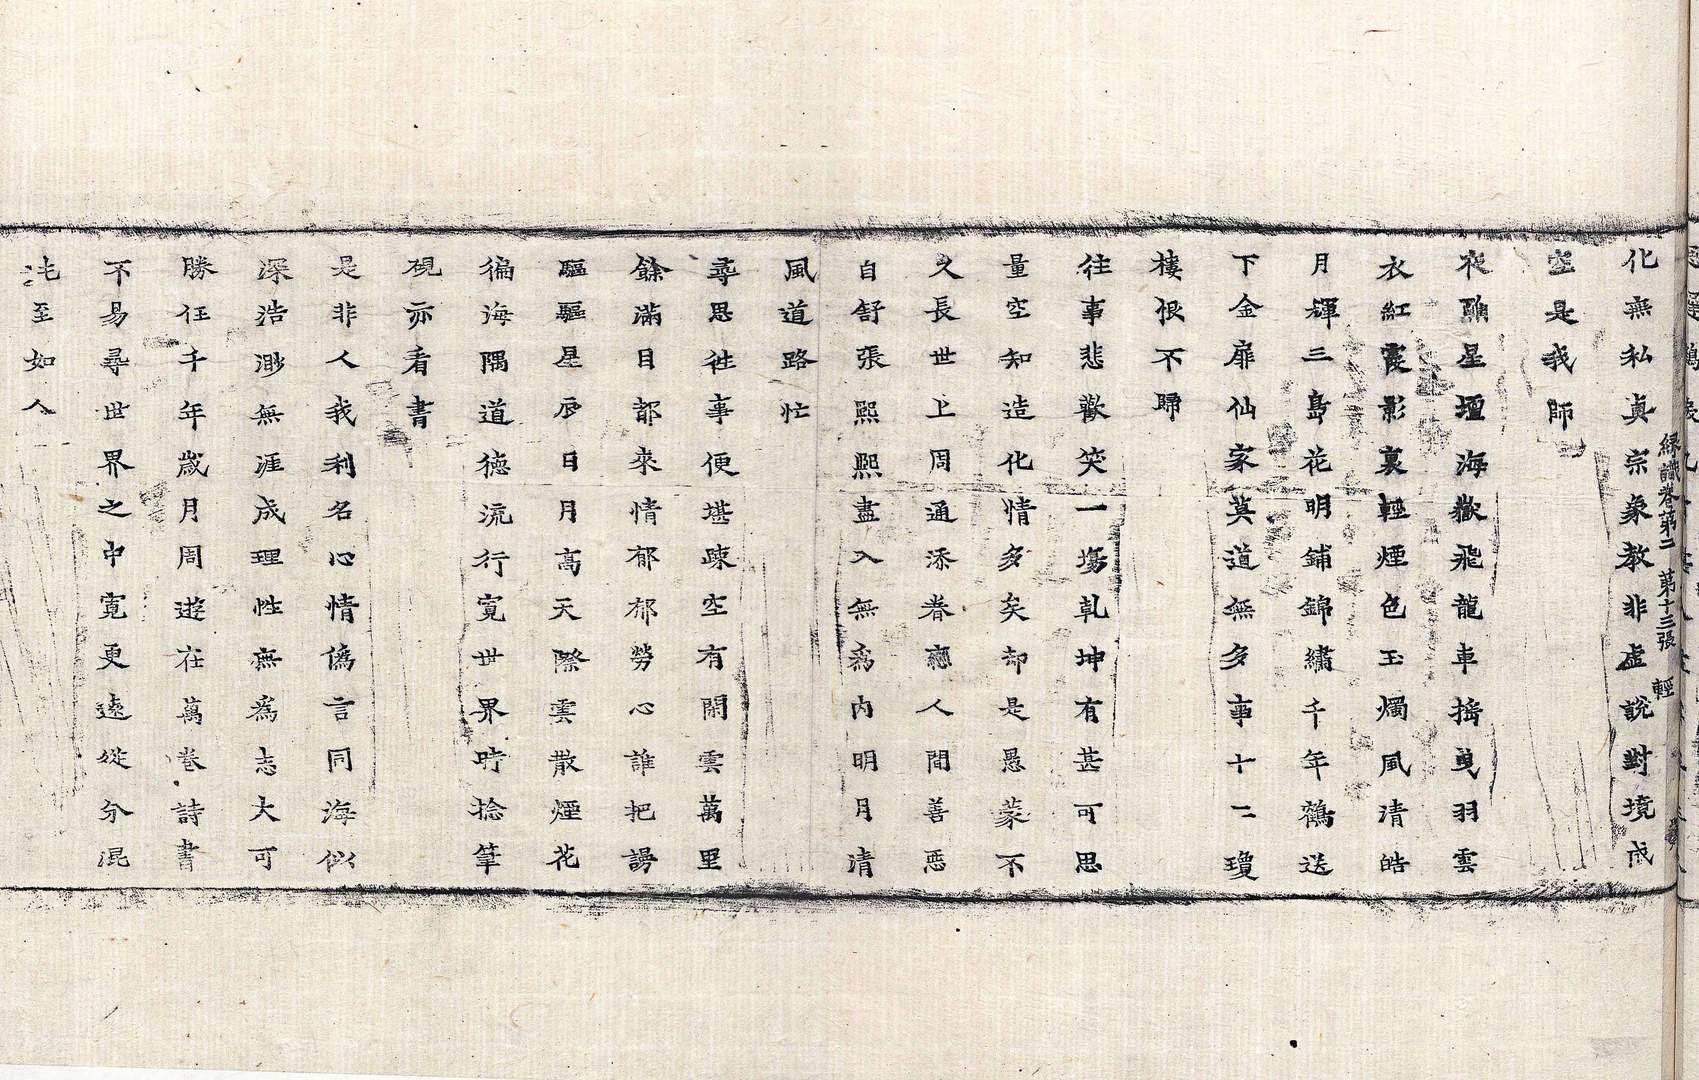 緣識卷第二 第十三張 輕
化無私真宗象教非虛說對境成
空是我師
夜醮星壇海嶽飛龍車搖曳羽雲
衣紅霞影裏輕煙色玉燭風清皓
月輝三島花明鋪錦繡千年鶴送
下金扉仙家莫道無多事十二瓊
樓恨不歸
往事悲歡笑一場乹坤有甚可思
量空知造化情多矣却是愚蒙不
久長世上周通添眷戀人間善惡
自舒張熙熙盡入無為內明月清
風道路忙
尋思往事便堪疎空有閑雲萬里
餘滿目都來情郁郁勞心誰把謗
驅驅星辰日月高天際雲散煙花
徧海隅道德流行寬世界時捻筆
硯亦看書
是非人我利名心情僞言同海似
深浩渺無涯成理性無為志大可
勝任千年歲月周遊在萬卷詩書
不易尋世界之中寬更遠從分混
沌至如人